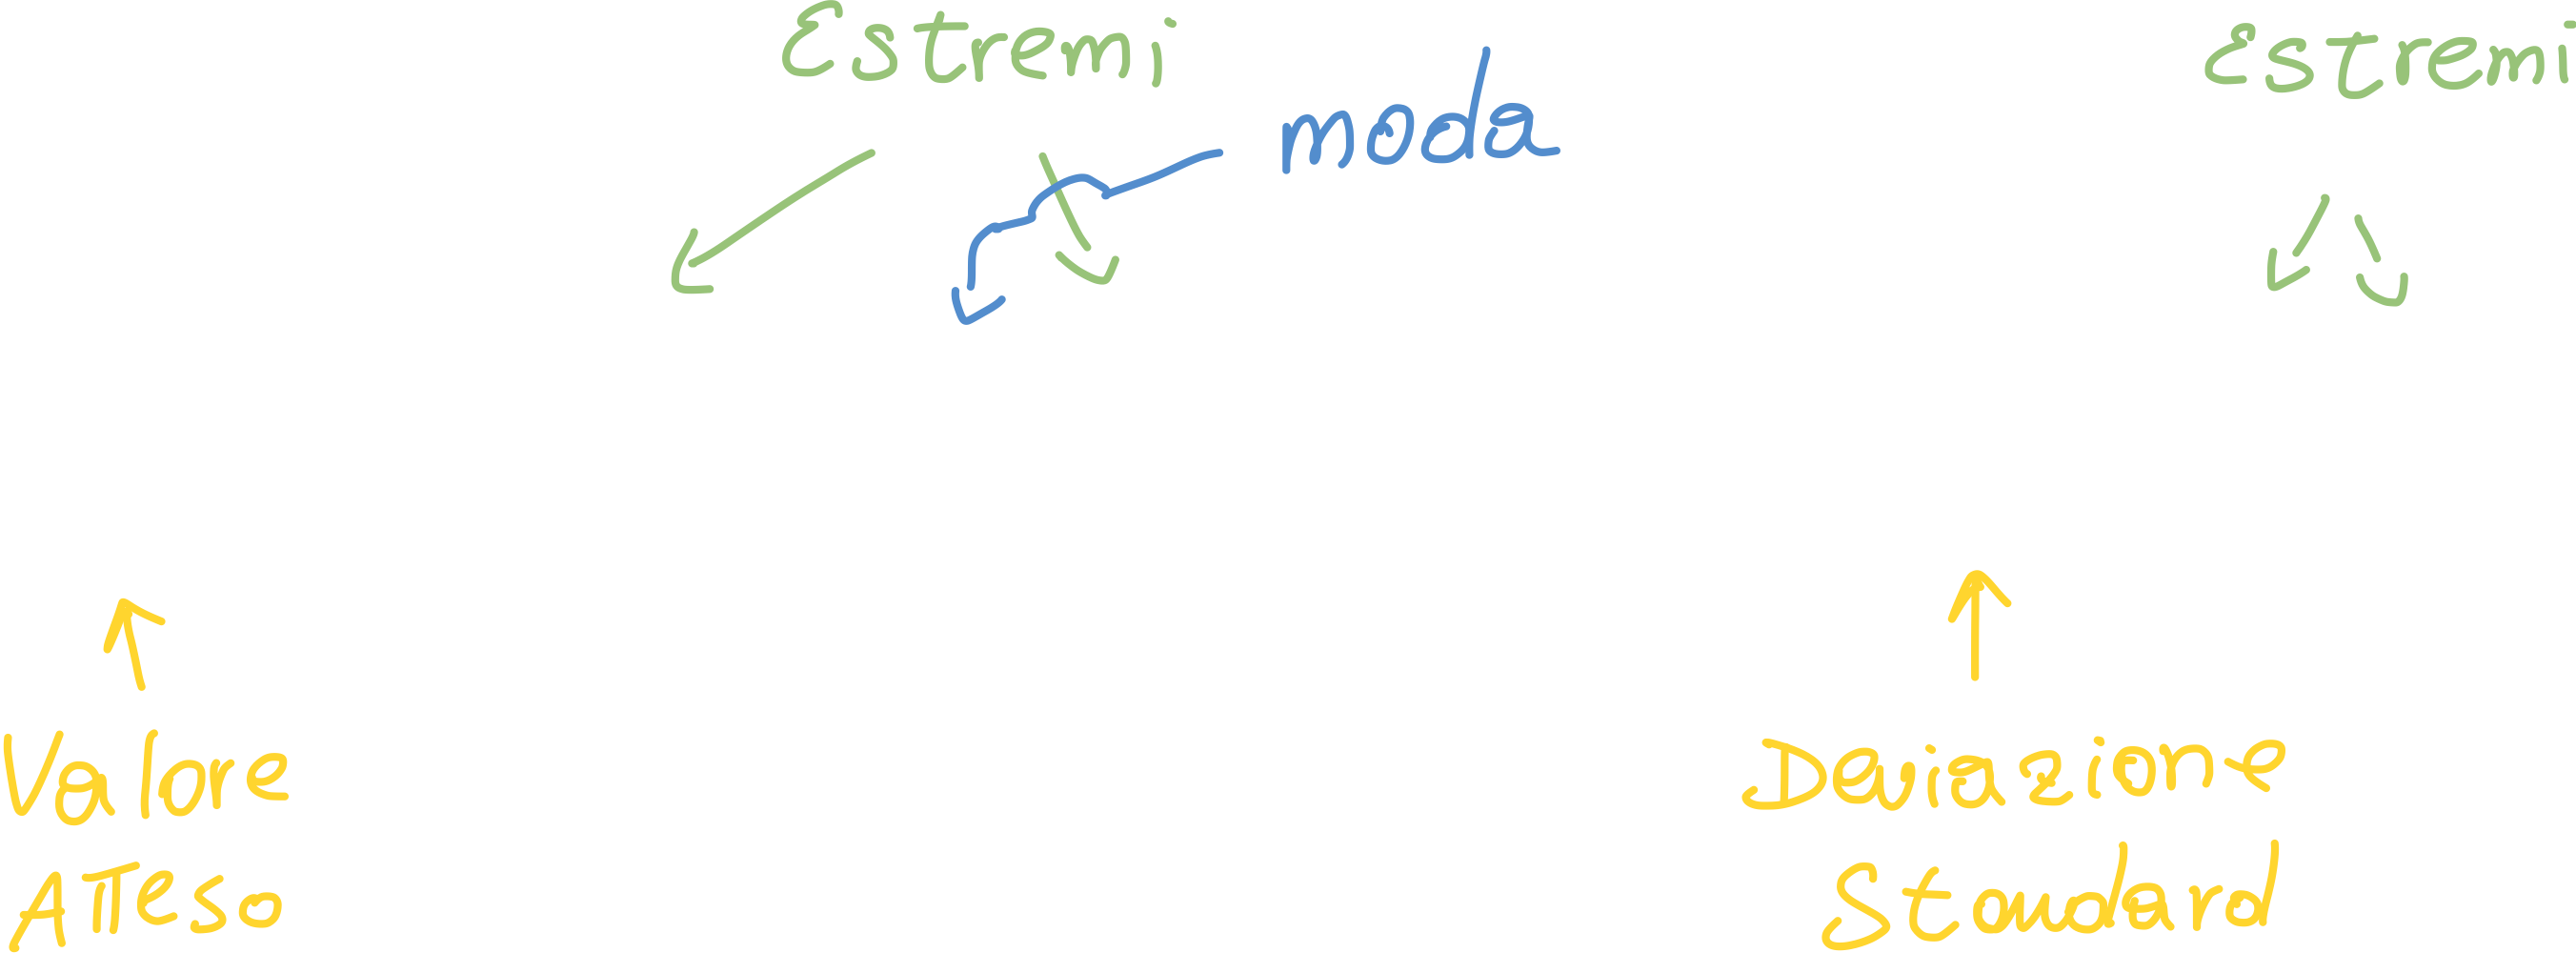 Estremi
Estremi
moda
Valore
Atteso
Deviazione
Standard